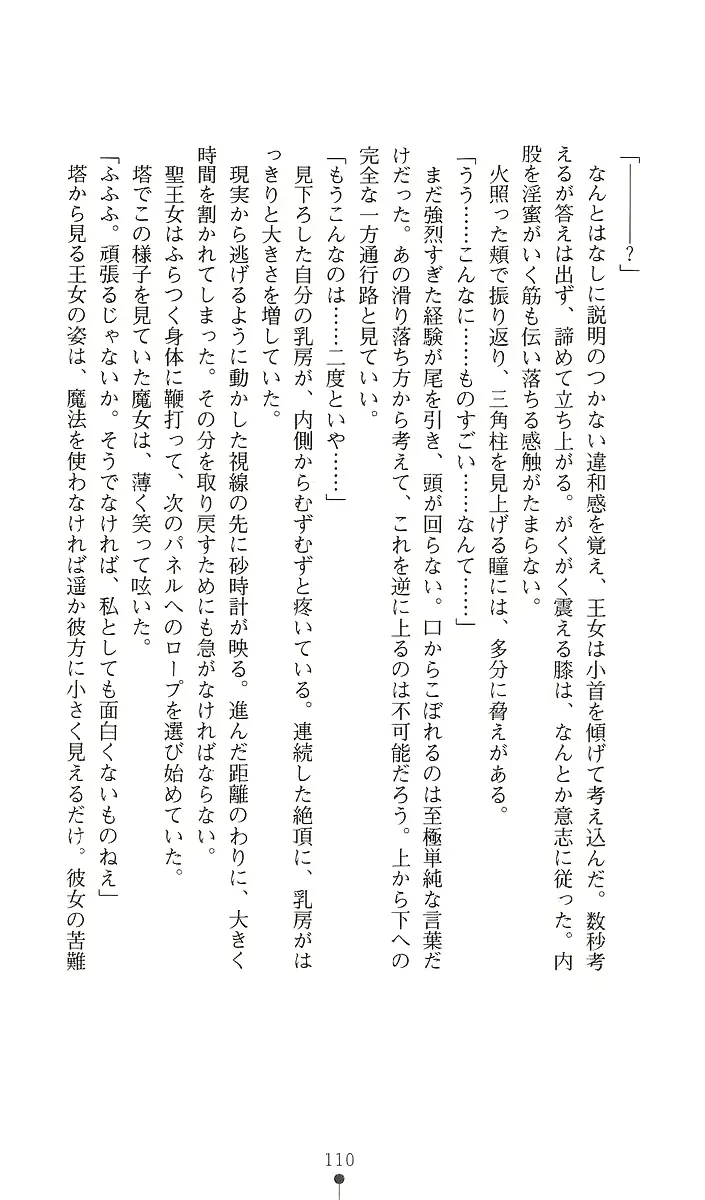 「――――？」
　なんとはなしに説明のつかない違和感を覚え、王女は小首を傾げて考え込んだ。数秒考
えるが答えは出ず、諦めて立ち上がる。がくがく震える膝は、なんとか意志に従った。内
股を淫蜜がいく筋も伝い落ちる感触がたまらない。
　火照った頬で振り返り、三角柱を見上げる瞳には、多分に脅えがある。
「うう……こんなに……ものすごい……なんて……」
　まだ強烈すぎた経験が尾を引き、頭が回らない。口からこぼれるのは至極単純な言葉だ
けだった。あの滑り落ち方から考えて、これを逆に上るのは不可能だろう。上から下への
完全な一方通行路と見ていい。
「もうこんなのは……二度といや……」
　見下ろした自分の乳房が、内側からむずむずと疼いている。連続した絶頂に、乳房がは
っきりと大きさを増していた。
　現実から逃げるように動かした視線の先に砂時計が映る。進んだ距離のわりに、大きく
時間を割かれてしまった。その分を取り戻すためにも急がなければならない。
　聖王女はふらつく身体に鞭打って、次のパネルへのロープを選び始めていた。
　塔でこの様子を見ていた魔女は、薄く笑って呟いた。
「ふふふ。頑張るじゃないか。そうでなければ、私としても面白くないものねえ」
　塔から見る王女の姿は、魔法を使わなければ遥か彼方に小さく見えるだけ。彼女の苦難
110